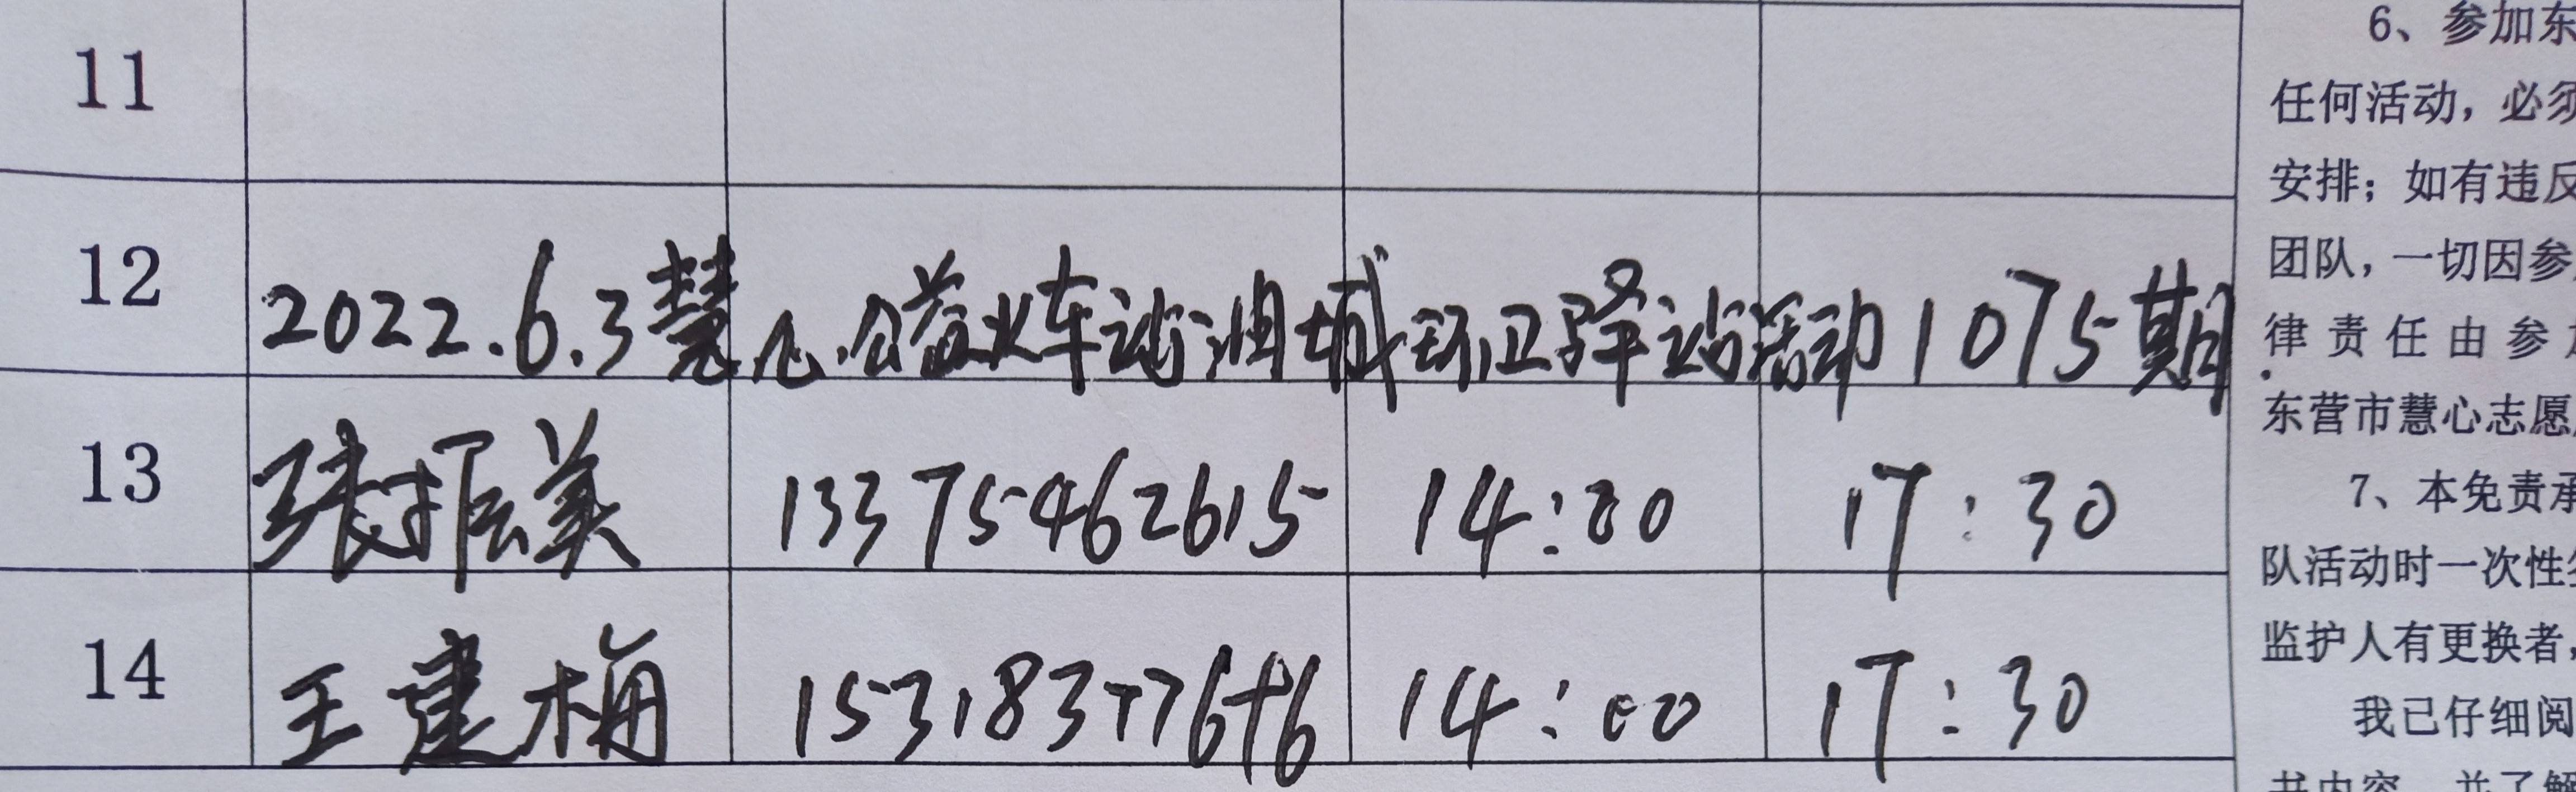 11
12 2022.6.3慧心公益火车站油城环卫驿站活动1075期
13 张振美 13375462615 14:00 17:30
14 王建梅 14:00 17:30
6、参加东
任何活动，必须
安排；如有违反
团队，一切因参
律责任由参
东营市慧心志愿
7、本免责承
队活动时一次性
监护人有更换者，
我已仔细阅
书内容，并了解